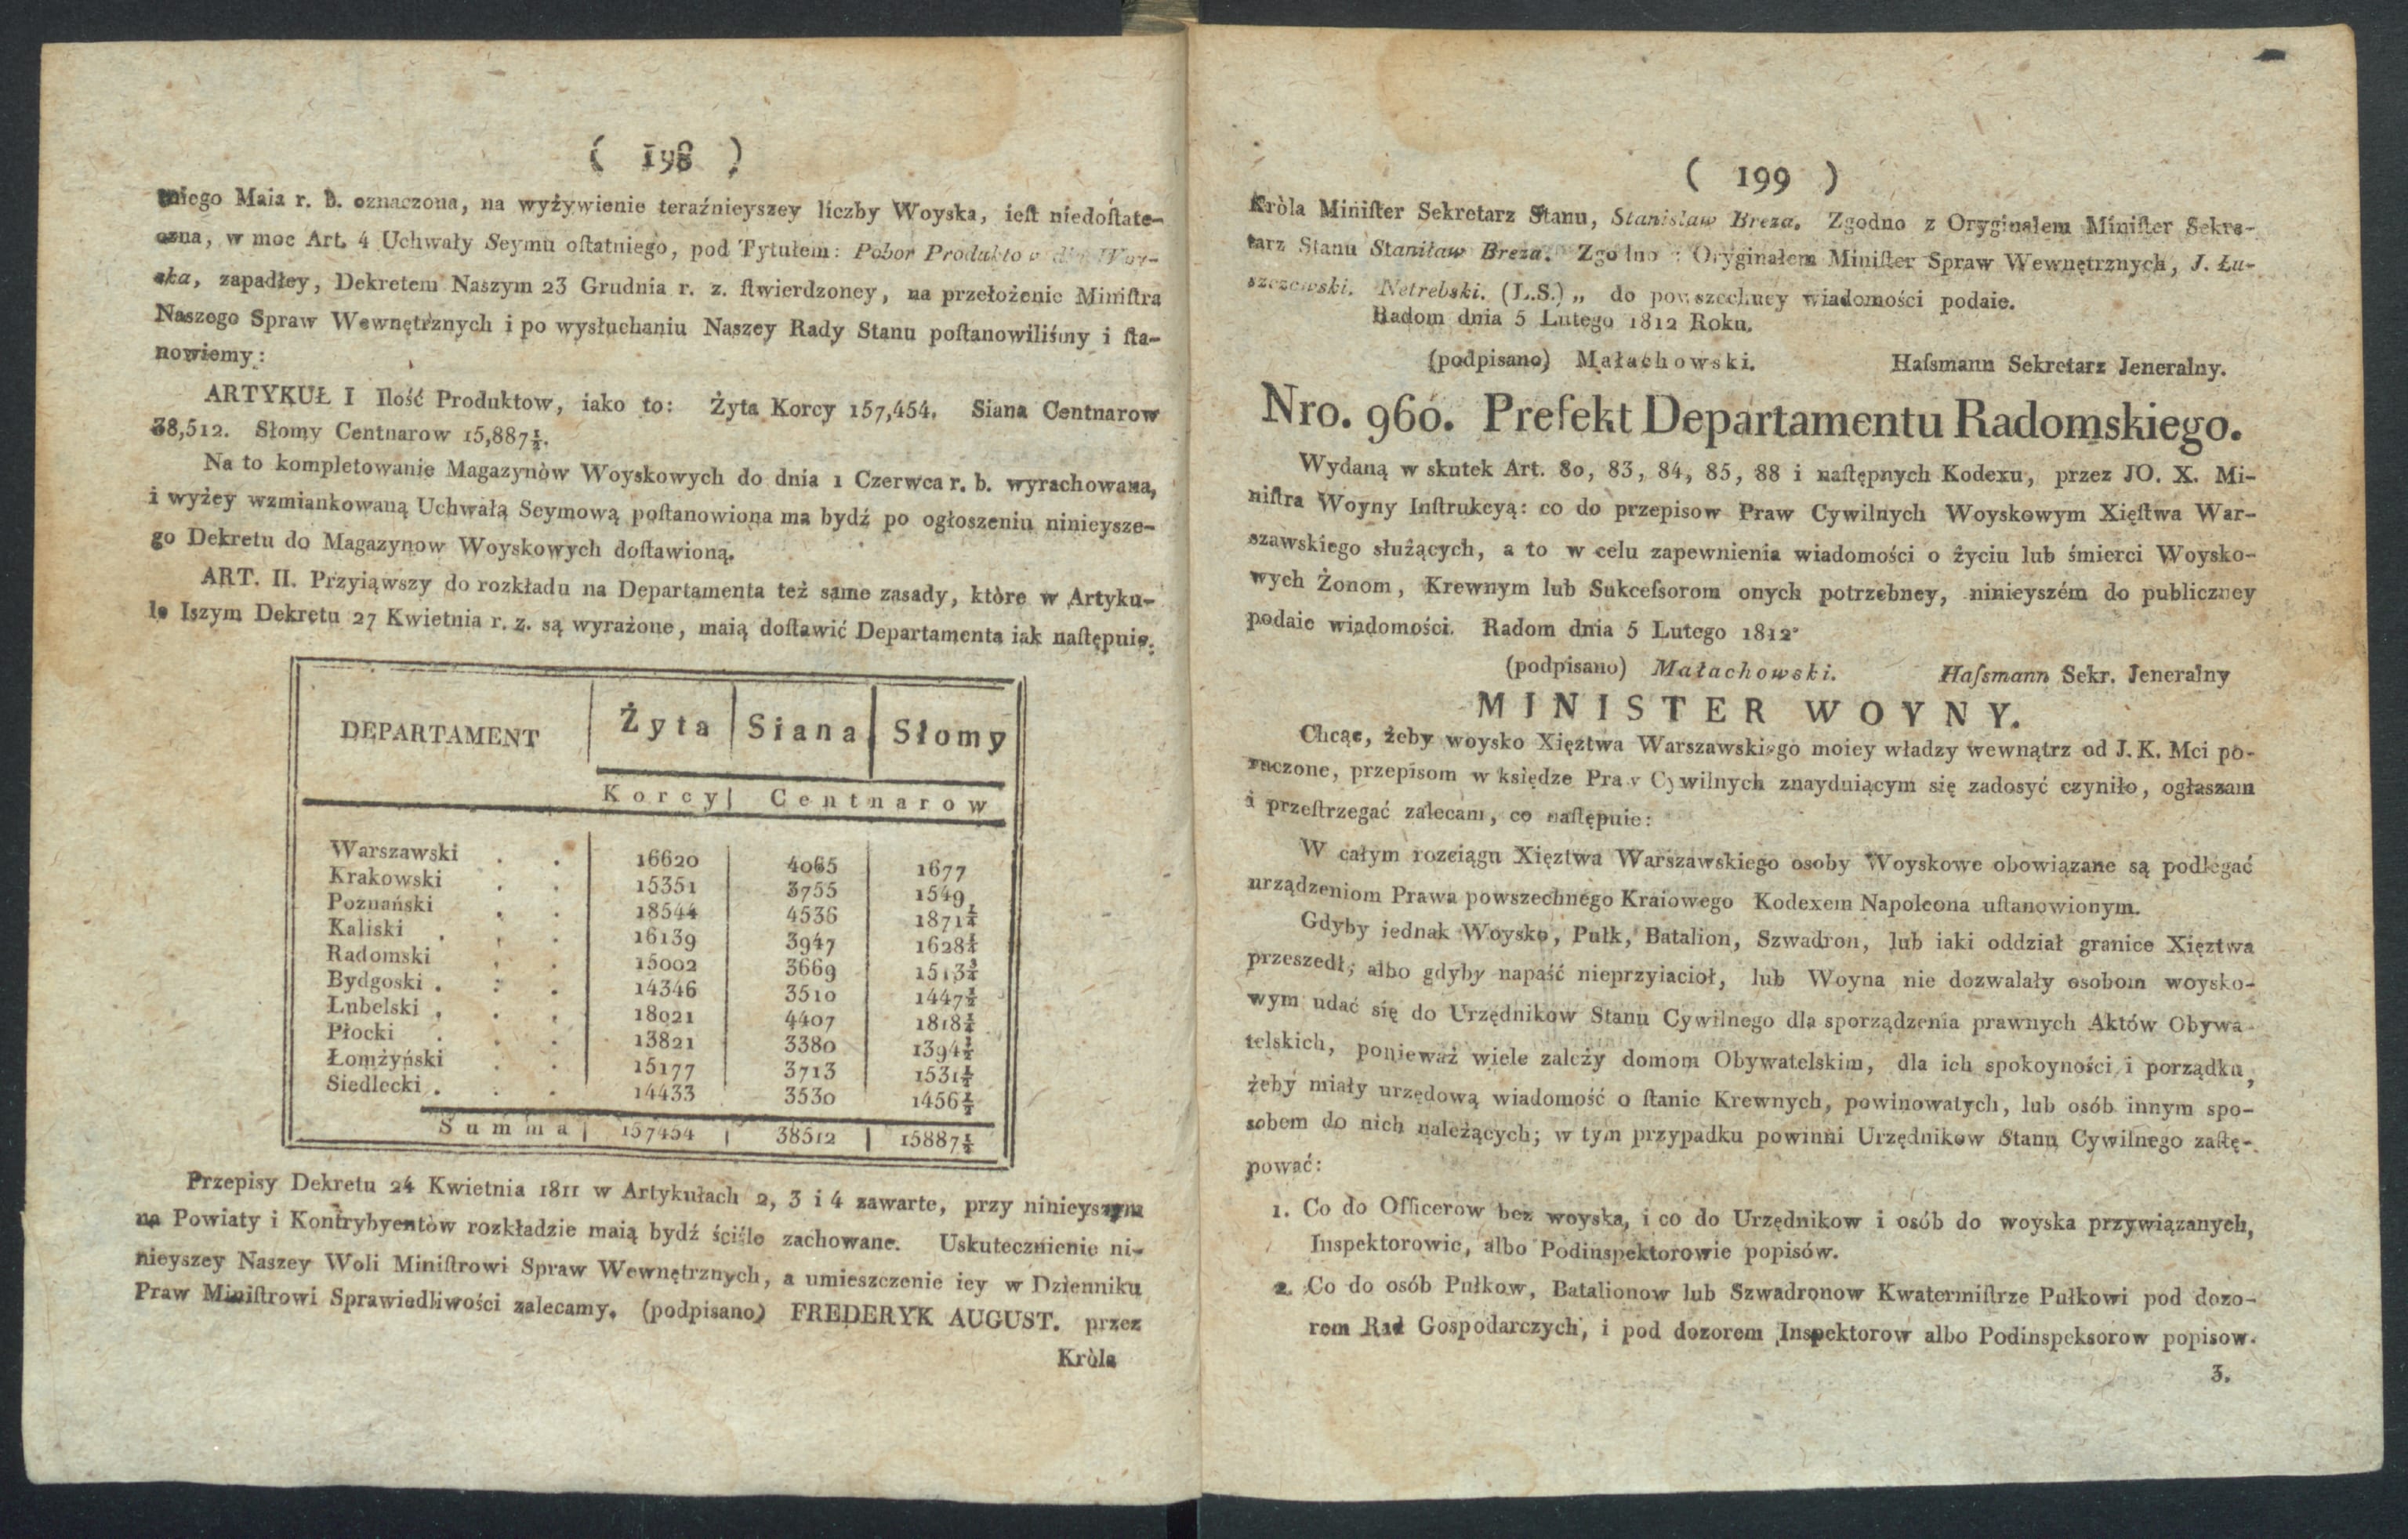 ( 198 )
tniego Maia r. b. oznaczona, na wyżywienie teraźnieyszey liczby Woyska, ieſt niedoſtate-
czna, w moc Art. 4 Uchwały Seymu oſtatniego, pod Tytułem: Pobor Produktow dla Woy-
ska, zapadłey, Dekretem Naszym 23 Grudnia r. z. ſtwierdzoney, na przełożenie Miniſtra
Naszego Spraw Wewnętrznych i po wysłuchaniu Naszey Rady Stanu poſtanowiliśmy i ſta-
nowiemy:
ARTYKUŁ I Ilość Produktow, iako to: Żyta Korcy 157,454. Siana Centnarow
38,512. Słomy Centnarow 15,887½.
Na to kompletowanie Magazynòw Woyskowych do dnia 1 Czerwca r. b. wyrachowana,
i wyżey wzmiankowaną Uchwałą Seymową poſtanowiona ma bydź po ogłoszeniu ninieysze-
go Dekretu do Magazynow Woyskowych doſtawioną.
ART. II. Przyiąwszy do rozkładu na Departamenta też same zasady, ktòre w Artyku-
le Iszym Dekretu 27 Kwietnia r. z. są wyrażone, maią doſtawić Departamenta iak naſtępuie:
DEPARTAMENT Żyta Siana Słomy
Korcy Centnarow
Warszawski . . 16620 4065 1677
Krakowski . . 15351 3755 1549
Poznański . . 18544 4536 1871
Kaliski . . . 16139 3947 1628
Radomski . . 15002 3669 1513
Bydgoski . . . 14346 3510 1447
Lubelski . . . 18021 4407 1818
Płocki . . . 13821 3380 1394
Łomżyński . . 15177 3713 1531
Siedlecki . . . 14433 3530 1456
Summa 157454 38512 15887½
Przepisy Dekretu 24 Kwietnia 1811 w Artykułach 2, 3 i 4 zawarte, przy ninieyszym
na Powiaty i Kontrybyentòw rozkładzie maią bydź ściśle zachowane. Uskutecznienie ni-
nieyszey Naszey Woli Miniſtrowi Spraw Wewnętrznych, a umieszczenie iey w Dzienniku
Praw Miniſtrowi Sprawiedliwości zalecamy. (podpisano) FREDERYK AUGUST. przez
Kròla
( 199 )
Kròla Miniſter Sekretarz Stanu, Stanisław Breza. Zgodno z Oryginałem Miniſter Sekre-
tarz Stanu Staniław Breza. Zgodno z Oryginałem Miniſter Spraw Wewnętrznych, J. Łu-
szczewski. Netrebski. (L.S.) „ do powszechney wiadomości podaie.
Radom dnia 5 Lutego 1812 Roku.
(podpisano) Małachowski. Haſsmann Sekretarz Jeneralny.
Nro. 960. Prefekt Departamentu Radomskiego.
Wydaną w skutek Art. 80, 83, 84, 85, 88 i naſtępnych Kodexu, przez JO. X. Mi-
niſtra Woyny Inſtrukcyą: co do przepisow Praw Cywilnych Woyskowym Xięſtwa War-
szawskiego służących, a to w celu zapewnienia wiadomości o życiu lub śmierci Woysko-
wych Żonom, Krewnym lub Sukceſsorom onych potrzebney, ninieyszém do publiczney
podaie wiadomości. Radom dnia 5 Lutego 1812.
(podpisano) Małachowski. Haſsmann Sekr. Jeneralny
MINISTER WOYNY.
Chcąc, żeby woysko Xięztwa Warszawskiego moiey władzy wewnątrz od J. K. Mci po-
ruczone, przepisom w księdze Praw Cywilnych znayduiącym się zadosyć czyniło, ogłaszam
i przeſtrzegać zalecam, co naſtępuie:
W całym rozciągu Xięztwa Warszawskiego osoby Woyskowe obowiązane są podlegać
urządzeniom Prawa powszechnego Kraiowego Kodexem Napoleona uſtanowionym.
Gdyby iednak Woysko, Pułk, Batalion, Szwadron, lub iaki oddział granice Xięztwa
przeszedł; albo gdyby napaść nieprzyiacioł, lub Woyna nie dozwalały osobom woysko-
wym udać się do Urzędnikow Stanu Cywilnego dla sporządzenia prawnych Aktów Obywa-
telskich, ponieważ wiele zależy domom Obywatelskim, dla ich spokoyności i porządku,
żeby miały urzędową wiadomość o ſtanie Krewnych, powinowatych, lub osób innym spo-
sobem do nich należących; w tym przypadku powinni Urzędnikow Stanu Cywilnego zaſtę-
pować:
1. Co do Officerow bez woyska, i co do Urzędnikow i osób do woyska przywiązanych,
Inspektorowie, albo Podinspektorowie popisów.
2. Co do osób Pułkow, Batalionow lub Szwadronow Kwatermiſtrze Pułkowi pod dozo-
rem Rad Gospodarczych, i pod dozorem Inspektorow albo Podinspeksorow popisow.
3.